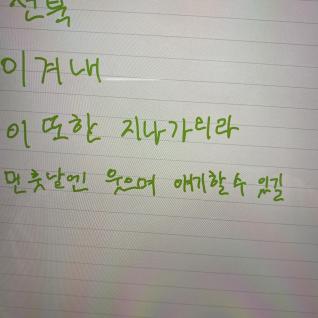 전북
이겨내
이 또한 지나가리라
먼훗날엔 웃으며 얘기할 수 있길